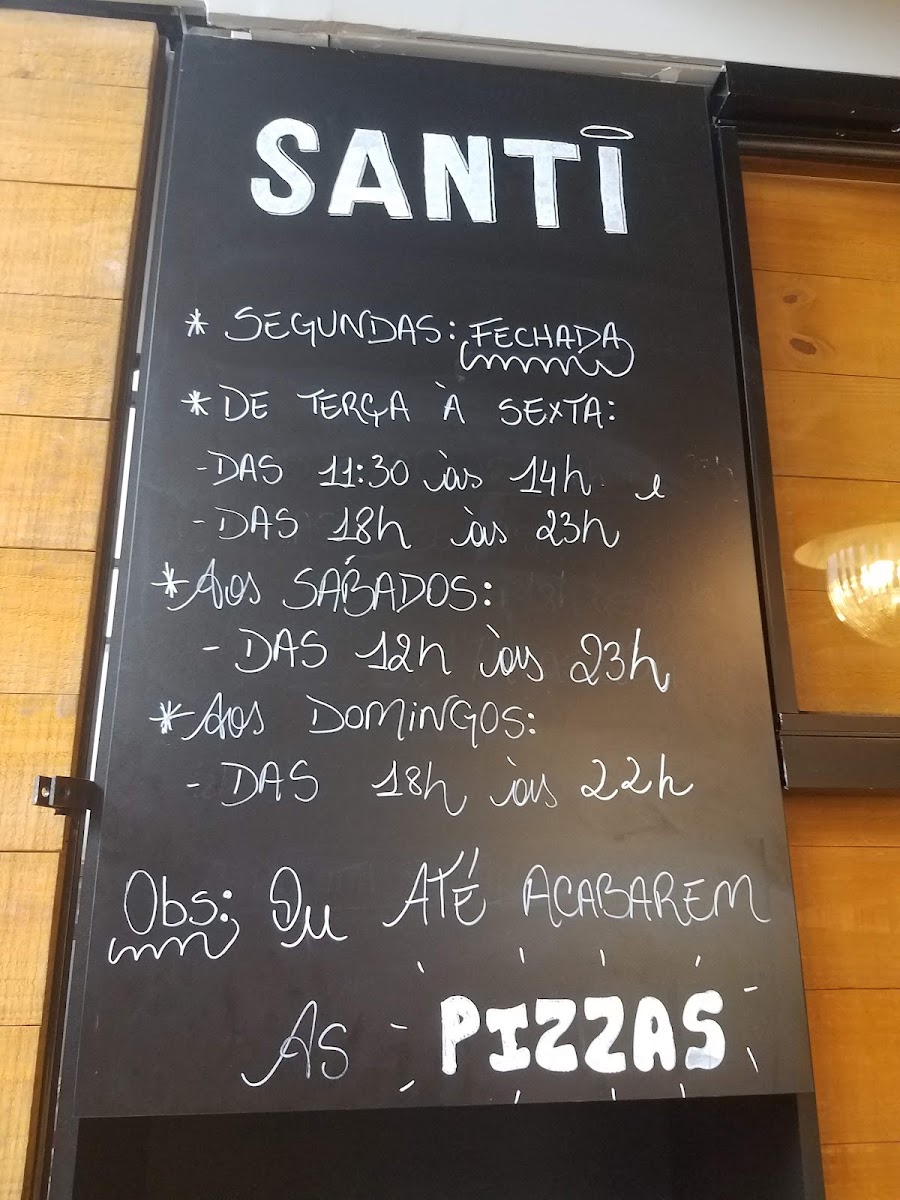 SANTI
* SEGUNDAS: FECHADA
* DE TERÇA À SEXTA:
- DAS 11:30 às 14h e
- DAS 18h às 23h
* Aos SÁBADOS:
- DAS 12h às 23h
* Aos DOMINGOS:
- DAS 18h às 22h
Obs: Ou ATÉ ACABAREM
AS PIZZAS